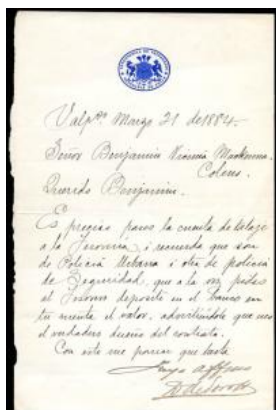 Valpso Marzo 21 de 1884.
Señor Benjamin Vicuña Mackenna.
Colmo.
Querido Benjamin.
Es preciso pasar la cuenta de
a la Tesoreria i recuerda que son
de Policia Urbana i otra de policia
de Seguridad, que a la vez pidas
al Tesorero deposite en el Banco en
tu cuenta el valor, advirtiéndole que
el verdadero dueño del contrato.
Con esto me parece que basta